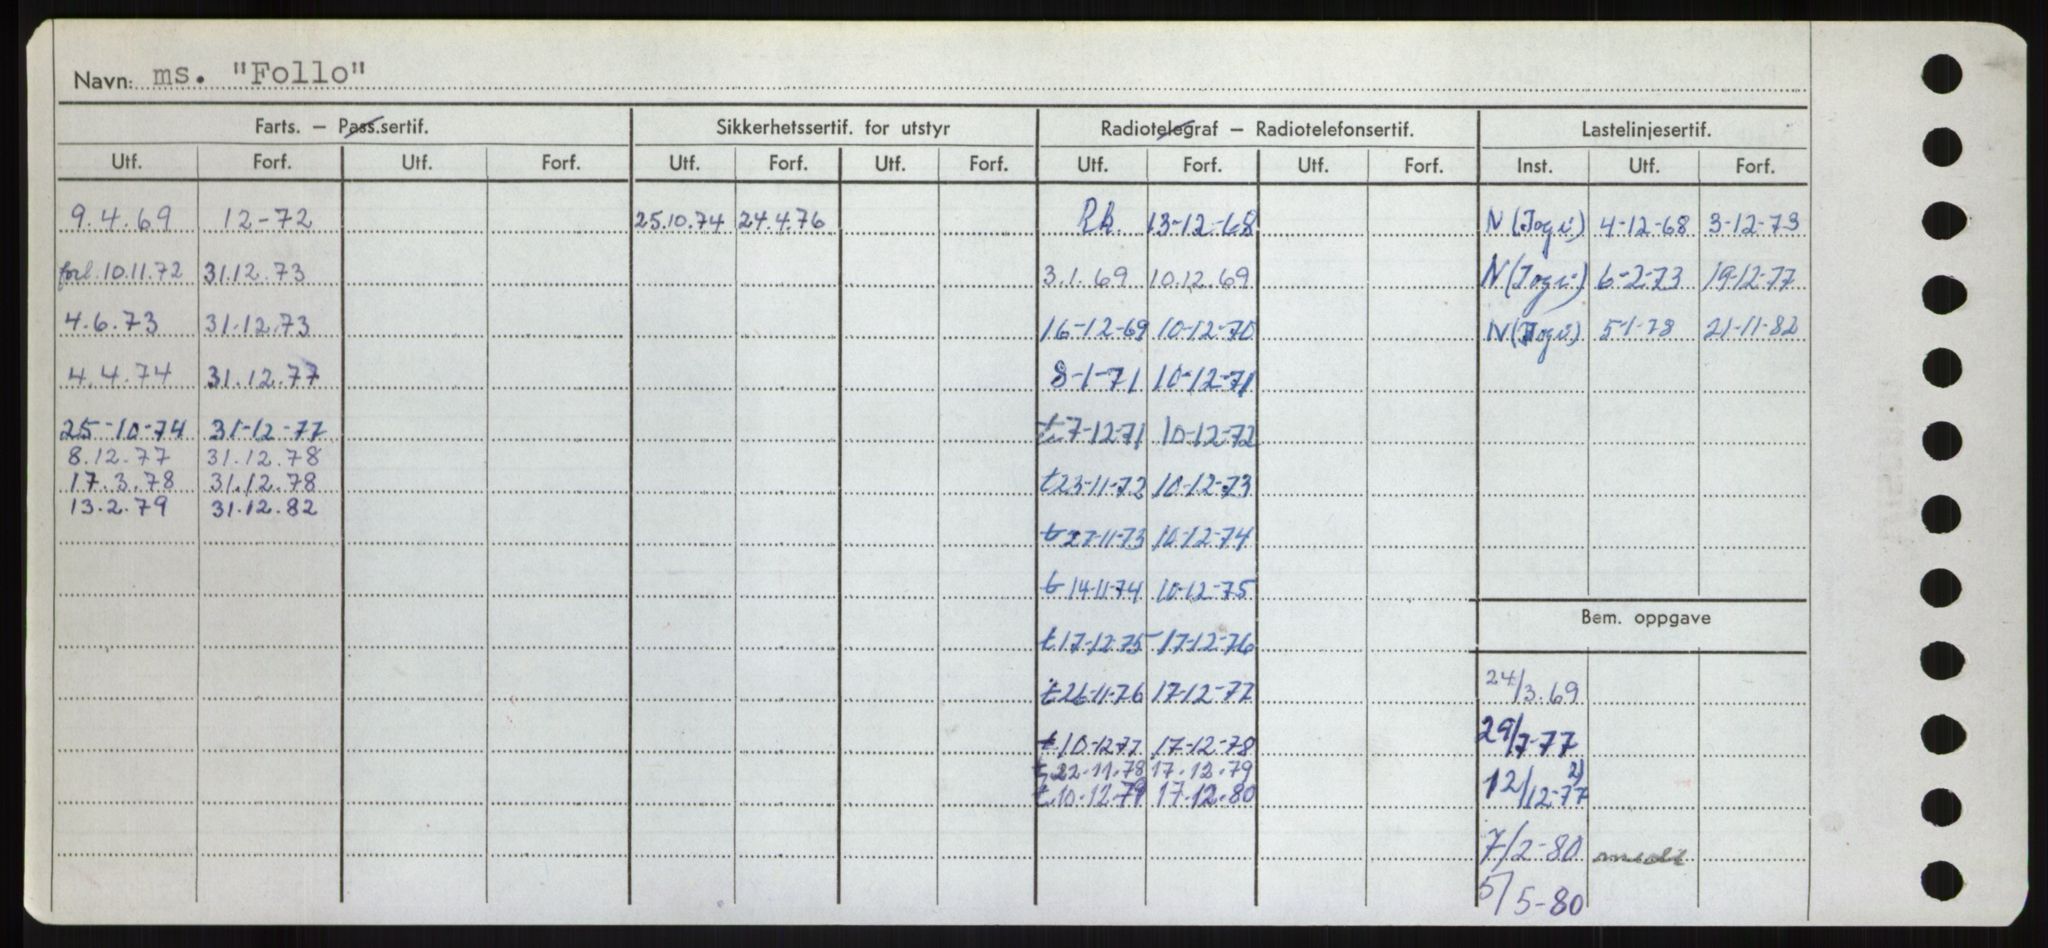 Navn: ms. "Follo"
Farts. — Pass.sertif. Sikkerhetssertif. for utstyr Radiotelegraf — Radiotelefonsertif. Lastelinjesertif.
Utf. Forf. Utf. Forf. Utf. Forf. Utf. Forf. Utf. Forf. Utf. Forf. Inst. Utf. Forf.
9.4.69 12-72 25.10.74 24.4.76 13-12-68 N 4-12-68 3-12-73
forl. 10.11.72 31.12.73 3.1.69 10.12.69 N 6-2-73 19-12-77
4.6.73 31.12.73 16-12-69 10-12-70 N 5-1-78 21-11-82
4.4.74 31.12.77 8-1-71 10-12-71
25-10-74 31-12-77 t 7-12-71 10-12-72
8.12.77 31.12.78
17.3.78 31.12.78 t 23-11-72 10-12-73
13.2.79 31.12.82
t 27-11-73 10-12-74
t 14-11-74 10-12-75
Bem. oppgave
t 17-12-75 17-12-76
t 26-11-76 17-12-77 24/3.69
t 10-12-77 17-12-78 29/7-77
t. 22-11.78 17.12.79 12/12-77 2)
t. 10.12.79 17.12.80
7/2-80
5/5-80